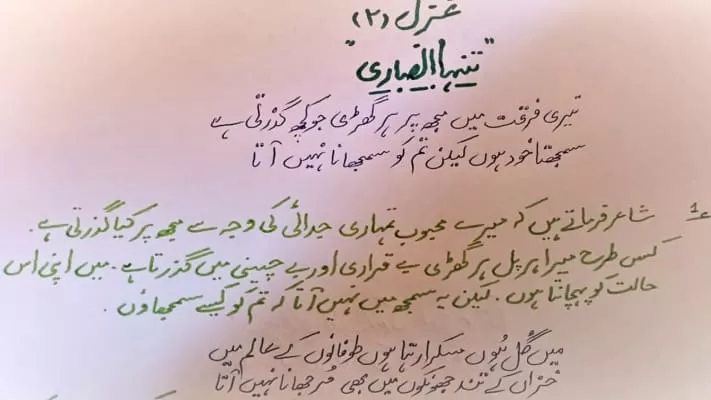 غزل (۲)
"تنہا انصاری"
تیری فرقت میں مجھ پر ہر گھڑی جو کچھ گذرتی ہے
سمجھتا خود ہوں لیکن تم کو سمجھانا نہیں آتا
1؎ شاعر فرماتے ہیں کہ میرے محبوب تمہاری جدائی کی وجہ سے مجھ پر کیا گذرتی ہے۔
کس طرح میرا ہر پل ہر گھڑی بے قراری اور بے چینی میں گذرتا ہے۔ میں اپنی اس
حالت کو پہچانتا ہوں۔ لیکن یہ سمجھ میں نہیں آتا کہ تم کو کیسے سمجھاؤں۔
میں گل ہوں مسکراتا رہتا ہوں طوفانوں کے عالم میں
خزاں کے تند جھونکوں میں بھی مُرجھانا نہیں آتا